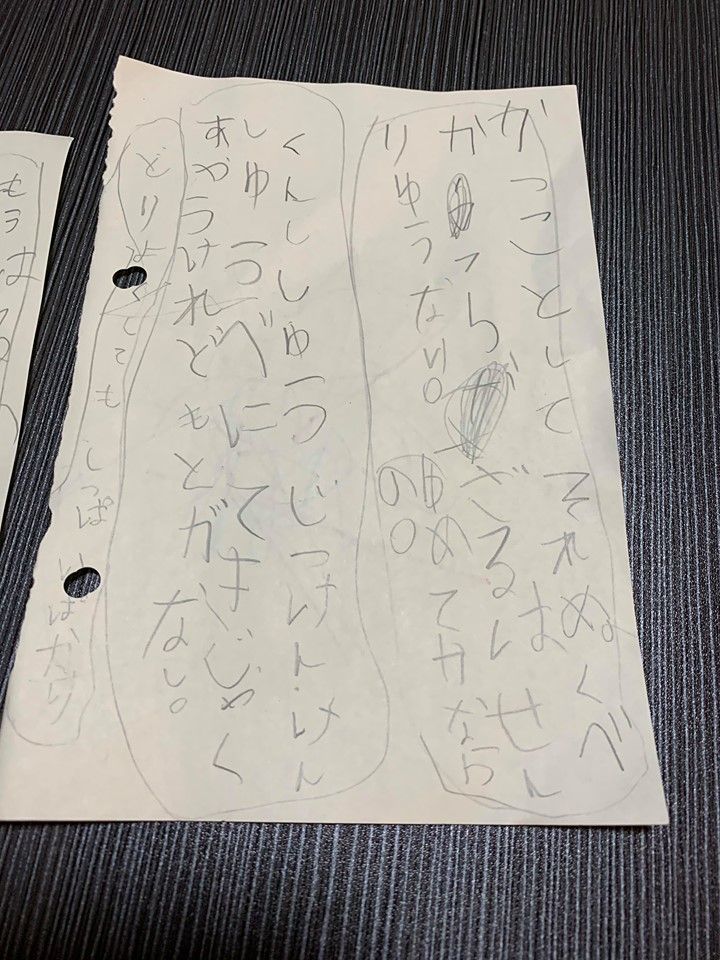 がっことして それぬくべ
かっらざるはせん
りゅうない。ゆめてかなら
の。
くんししゅうつ じっけん・けん
しゅうつべにてはじゃく
あやうけれどもとガない。
どりょくても しっぱいばかり
もうは